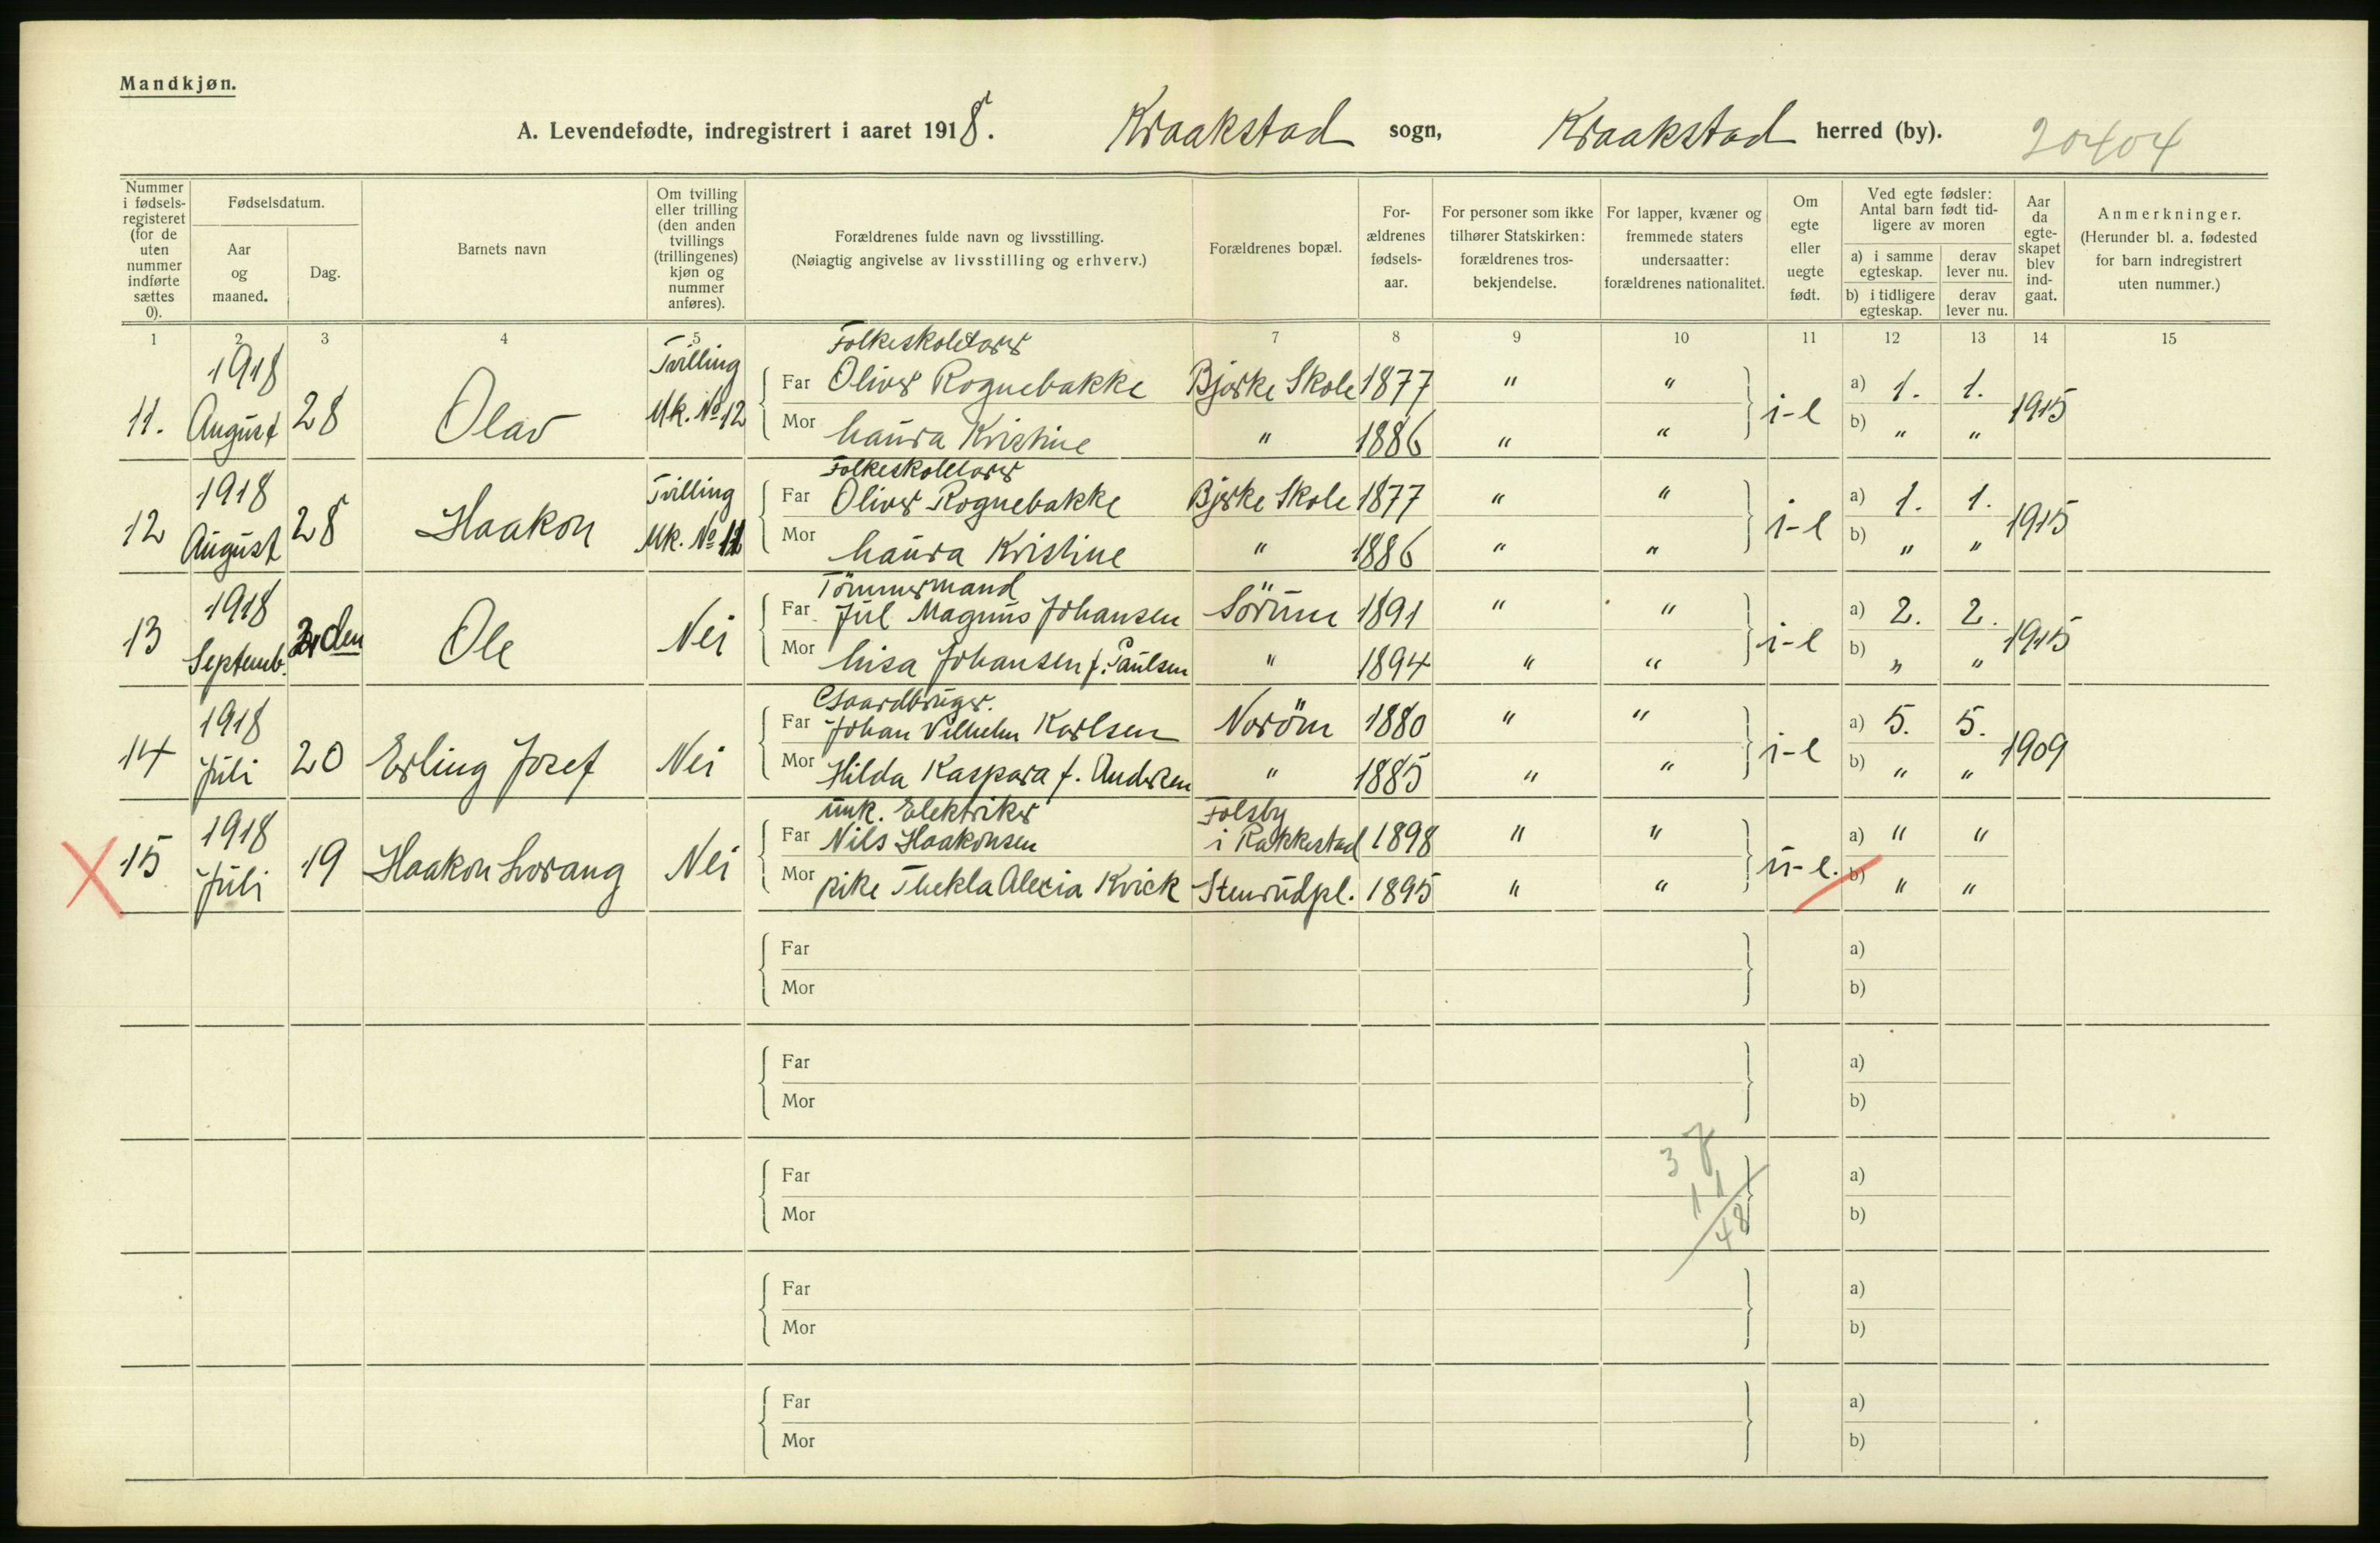 Mandkjøn.
A. Levendefødte, indregistrert i aaret 1918. Kraakstad sogn, Kraakstad herred (by). 20404
Nummer i fødsels-registeret (for de uten nummer indførte sættes 0).
Fødselsdatum.
Aar og maaned.
Dag.
Barnets navn
Om tvilling eller trilling (den anden tvillings (trillingenes) kjøn og nummer anføres).
Forældrenes fulde navn og livsstilling.
(Nøiagtig angivelse av livsstilling og erhverv.)
Forældrenes bopæl.
For-ældrenes fødsels-aar.
For personer som ikke tilhører Statskirken: forældrenes tros-bekjendelse.
For lapper, kvæner og fremmede staters undersaatter: forældrenes nationalitet.
Om egte eller uegte født.
Ved egte fødsler: Antal barn født tid-ligere av moren
a) i samme egteskap. derav lever nu.
b) i tidligere egteskap. derav lever nu.
Aar da egte-skapet blev ind-gaat.
Anmerkninger.
(Herunder bl. a. fødested for barn indregistrert uten nummer.)
1 2 3 4 5 7 8 9 10 11 12 13 14 15
1918 Tvilling Folkeskolelærer
Far Oliver Rognebakke Bjerke Skole 1877 " " a) 1. 1.
11. August 28 Olav Mk. No 12 i-e 1915
Mor Laura Kristine " 1886 " " b) " "
1918 Tvilling Folkeskolelærer
Far Oliver Rognebakke Bjerke Skole 1877 " " a) 1. 1.
12 August 28 Haakon Mk. No 11 i-e 1915
Mor Laura Kristine " 1886 " " b) " "
1918 Tömmermand
Far Jul Magnus Johansen Sörum 1891 " " a) 2. 2.
13 Septemb. den Ole Nei i-e 1915
Mor Lisa Johansen f. Paulsen " 1894 " " b) " "
1918 Gaardbruger.
Far Johan Vilhelm Karlsen Noröm 1880 " " a) 5. 5.
14 Juli 20 Erling Josef Nei i-e 1909
Mor Hilda Kaspara f. Andersen " 1885 " " b) " "
1918 unk. Elektriker Folsby
Far Nils Haakonsen i Rakkestad 1898 " " a) " "
15 Juli 19 Haakon Lorang Nei u-e.
Mor pike Thekla Alexia Kvick Stenrudpl. 1895 " " b) " "
Far a)
Mor b)
Far a)
Mor b)
37
Far a)
11
Mor b)
48
Far a)
Mor b)
Far a)
Mor b)